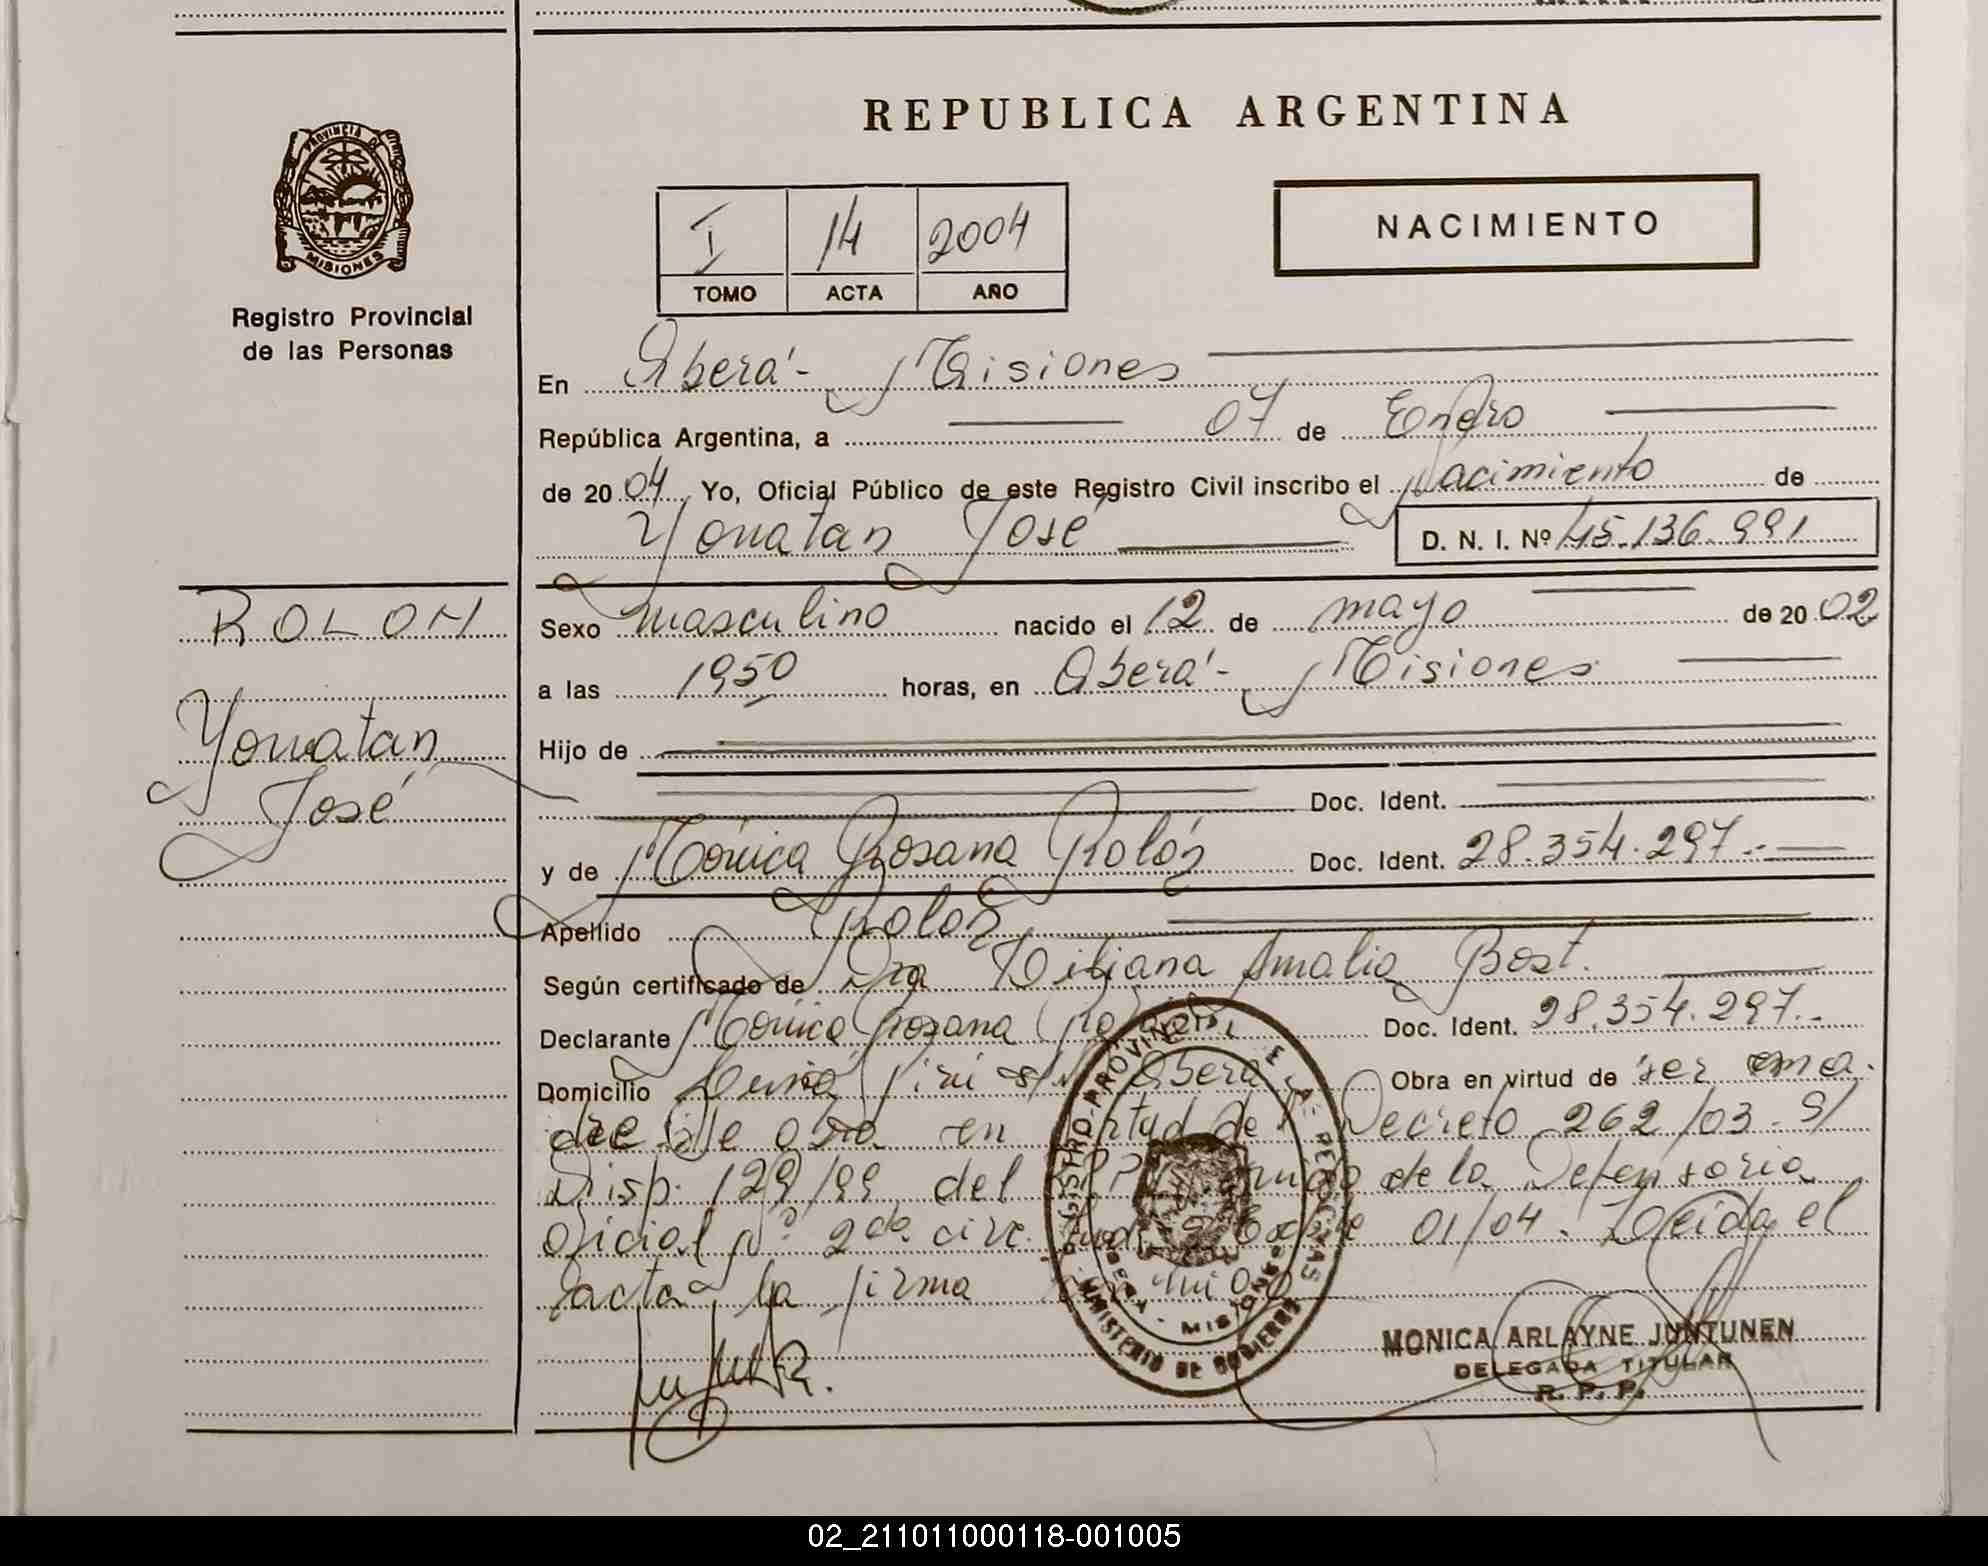 REPUBLICA ARGENTINA
PROVINCIA DE
MISIONES
Registro Provincial
de las Personas
NACIMIENTO
I 14 2004
TOMO ACTA AÑO
En Oberá - Misiones
República Argentina, a 07 de Enero
de 2004 Yo, Oficial Público de este Registro Civil inscribo el Nacimiento de
Yonatan José D. N. I. Nº 45.136.991
ROLON
Yonatan
José
Sexo masculino nacido el 12 de mayo de 2002
a las 1950 horas, en Oberá - Misiones
Hijo de
Doc. Ident.
y de Mónica Rosana Rolón Doc. Ident. 28.354.297.-
Apellido Rolón
Según certificado de Dra Liliana Amalia Bost.
Declarante Mónica Rosana Rolón Doc. Ident. 28.354.297.-
Domicilio s/n Oberá Obra en virtud de ser
en virtud del Decreto 262/03 - S/
Disp. 129/99 del RPP de la Defensoria
Oficial Nº 2 da. circ. Jud. 01/04. Leida el
acta la firma conmigo
REGISTRO PROVINCIAL DE LAS PERSONAS
OBERA - MISIONES
MINISTERIO DE GOBIERNO
MONICA ARLAYNE JUNTUNEN
DELEGADA TITULAR
R. P. P.
02_211011000118-001005